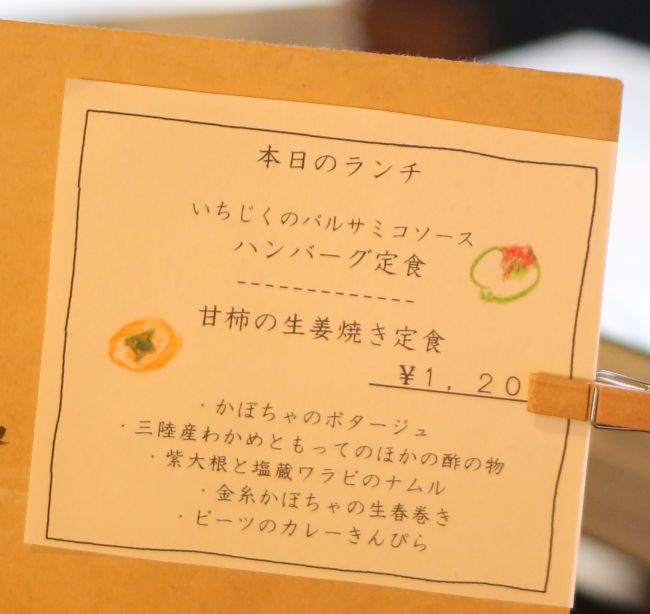 本日のランチ
いちじくのバルサミコソース
ハンバーグ定食
-------------
甘柿の生姜焼き定食
¥1,20
・かぼちゃのポタージュ
・三陸産わかめともってのほかの酢の物
・紫大根と塩蔵ワラビのナムル
・金糸かぼちゃの生春巻き
・ビーツのカレーきんぴら